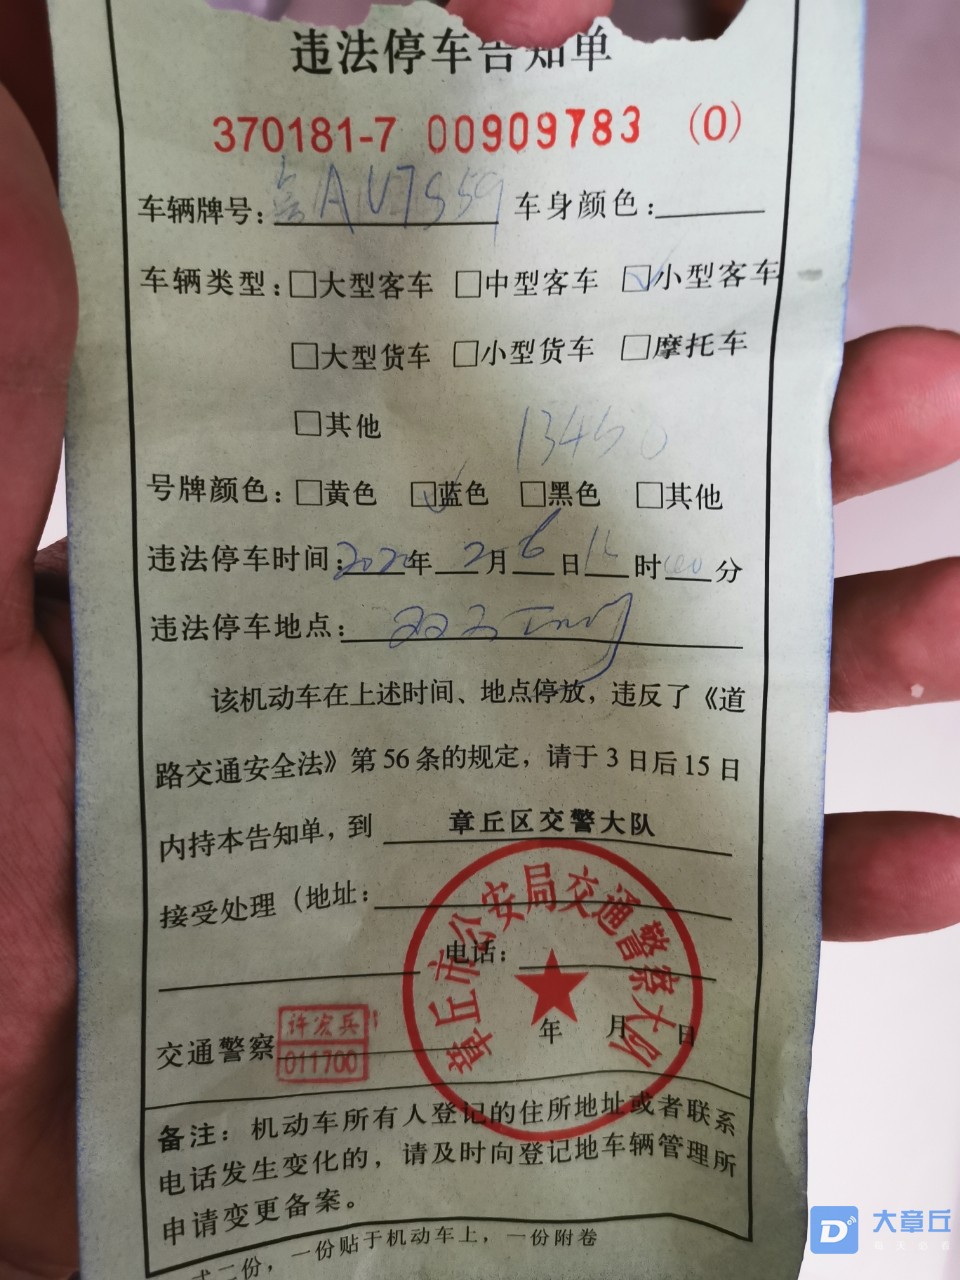 违法停车告知单
370181-7 00909783 (0)
车辆牌号：鲁AU7S59 车身颜色：
车辆类型：□大型客车 □中型客车 ☑小型客车
□大型货车 □小型货车 □摩托车
□其他
13450
号牌颜色：□黄色 ☑蓝色 □黑色 □其他
违法停车时间：2020年2月6日 时 分
违法停车地点：
该机动车在上述时间、地点停放，违反了《道
路交通安全法》第56条的规定，请于3日后15日
内持本告知单，到 章丘区交警大队
接受处理（地址：
电话：
章丘市公安局交通警察大队
年 月 日
交通警察 许宏兵
011700
备注：机动车所有人登记的住所地址或者联系
电话发生变化的，请及时向登记地车辆管理所
申请变更备案。
式二份，一份贴于机动车上，一份附卷
大章丘